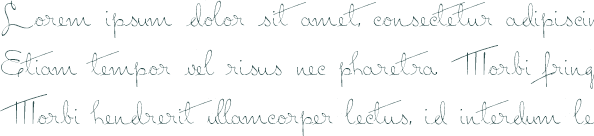 Lorem ipsum dolor sit amet, consectetur adipiscin
Etiam tempor vel risus nec pharetra. Morbi fring
Morbi hendrerit ullamcorper lectus, id interdum le